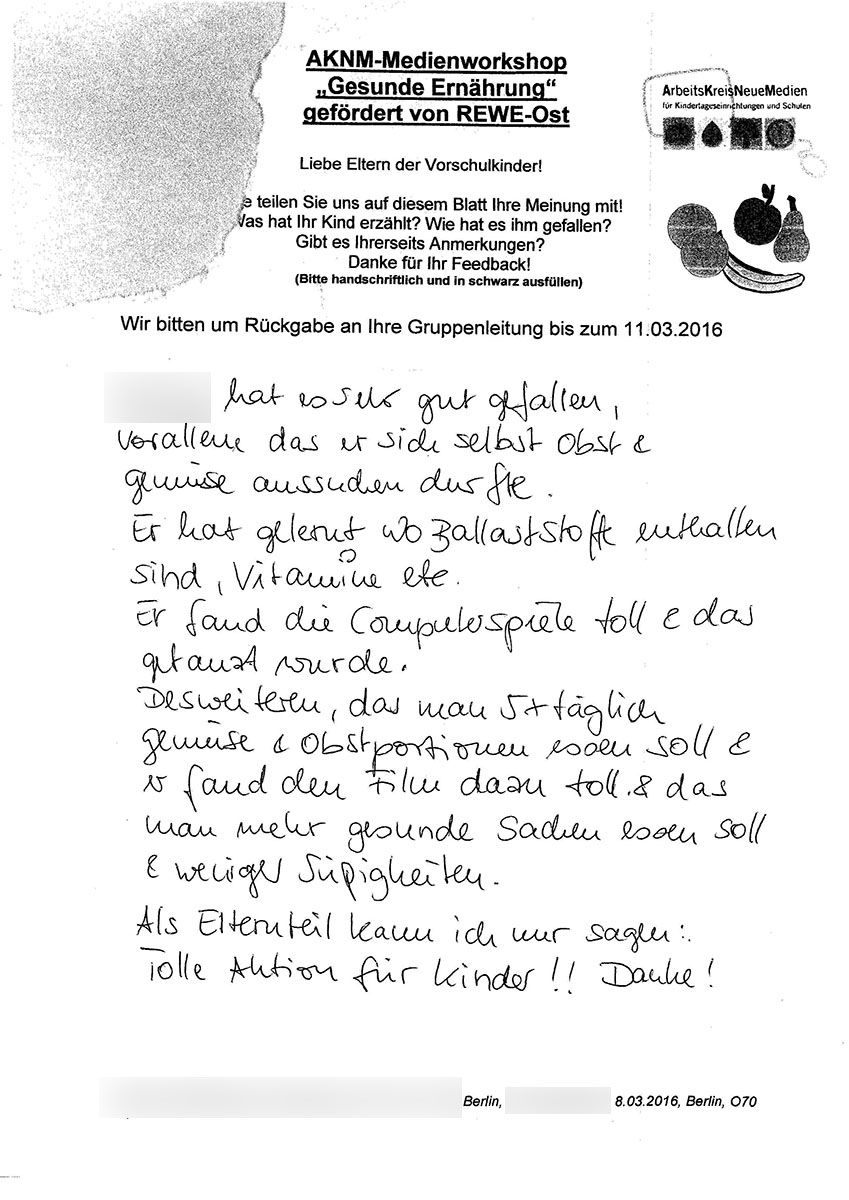 AKNM-Medienworkshop
„Gesunde Ernährung“
gefördert von REWE-Ost
ArbeitsKreisNeueMedien
für Kindertageseinrichtungen und Schulen
Liebe Eltern der Vorschulkinder!
e teilen Sie uns auf diesem Blatt Ihre Meinung mit!
Was hat Ihr Kind erzählt? Wie hat es ihm gefallen?
Gibt es Ihrerseits Anmerkungen?
Danke für Ihr Feedback!
(Bitte handschriftlich und in schwarz ausfüllen)
Wir bitten um Rückgabe an Ihre Gruppenleitung bis zum 11.03.2016
hat es sehr gut gefallen,
vorallem das er sich selbst Obst &
gemüse aussuchen durfte.
Er hat gelernt wo Ballaststoffe enthalten
sind, Vitamine etc.
Er fand die Computerspiele toll & das
getanzt wurde.
Desweiteren, das man 5x täglich
gemüse & Obstportionen essen soll &
er fand den Film dazu toll. & das
man mehr gesunde Sachen essen soll
& weniger Süßigkeiten.
Als Elternteil kann ich nur sagen:
Tolle Aktion für Kinder!! Danke!
Berlin, 8.03.2016, Berlin, O70